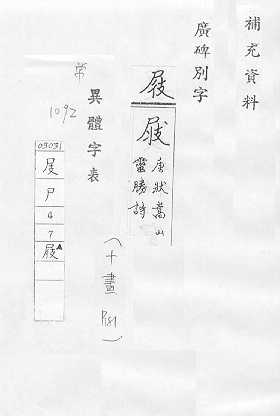 補充資料
廣碑別字
屐
唐狀嵩山
靈勝詩
異體字表
(十畫 P181)
常
1092
03031
尸
4
7
屐